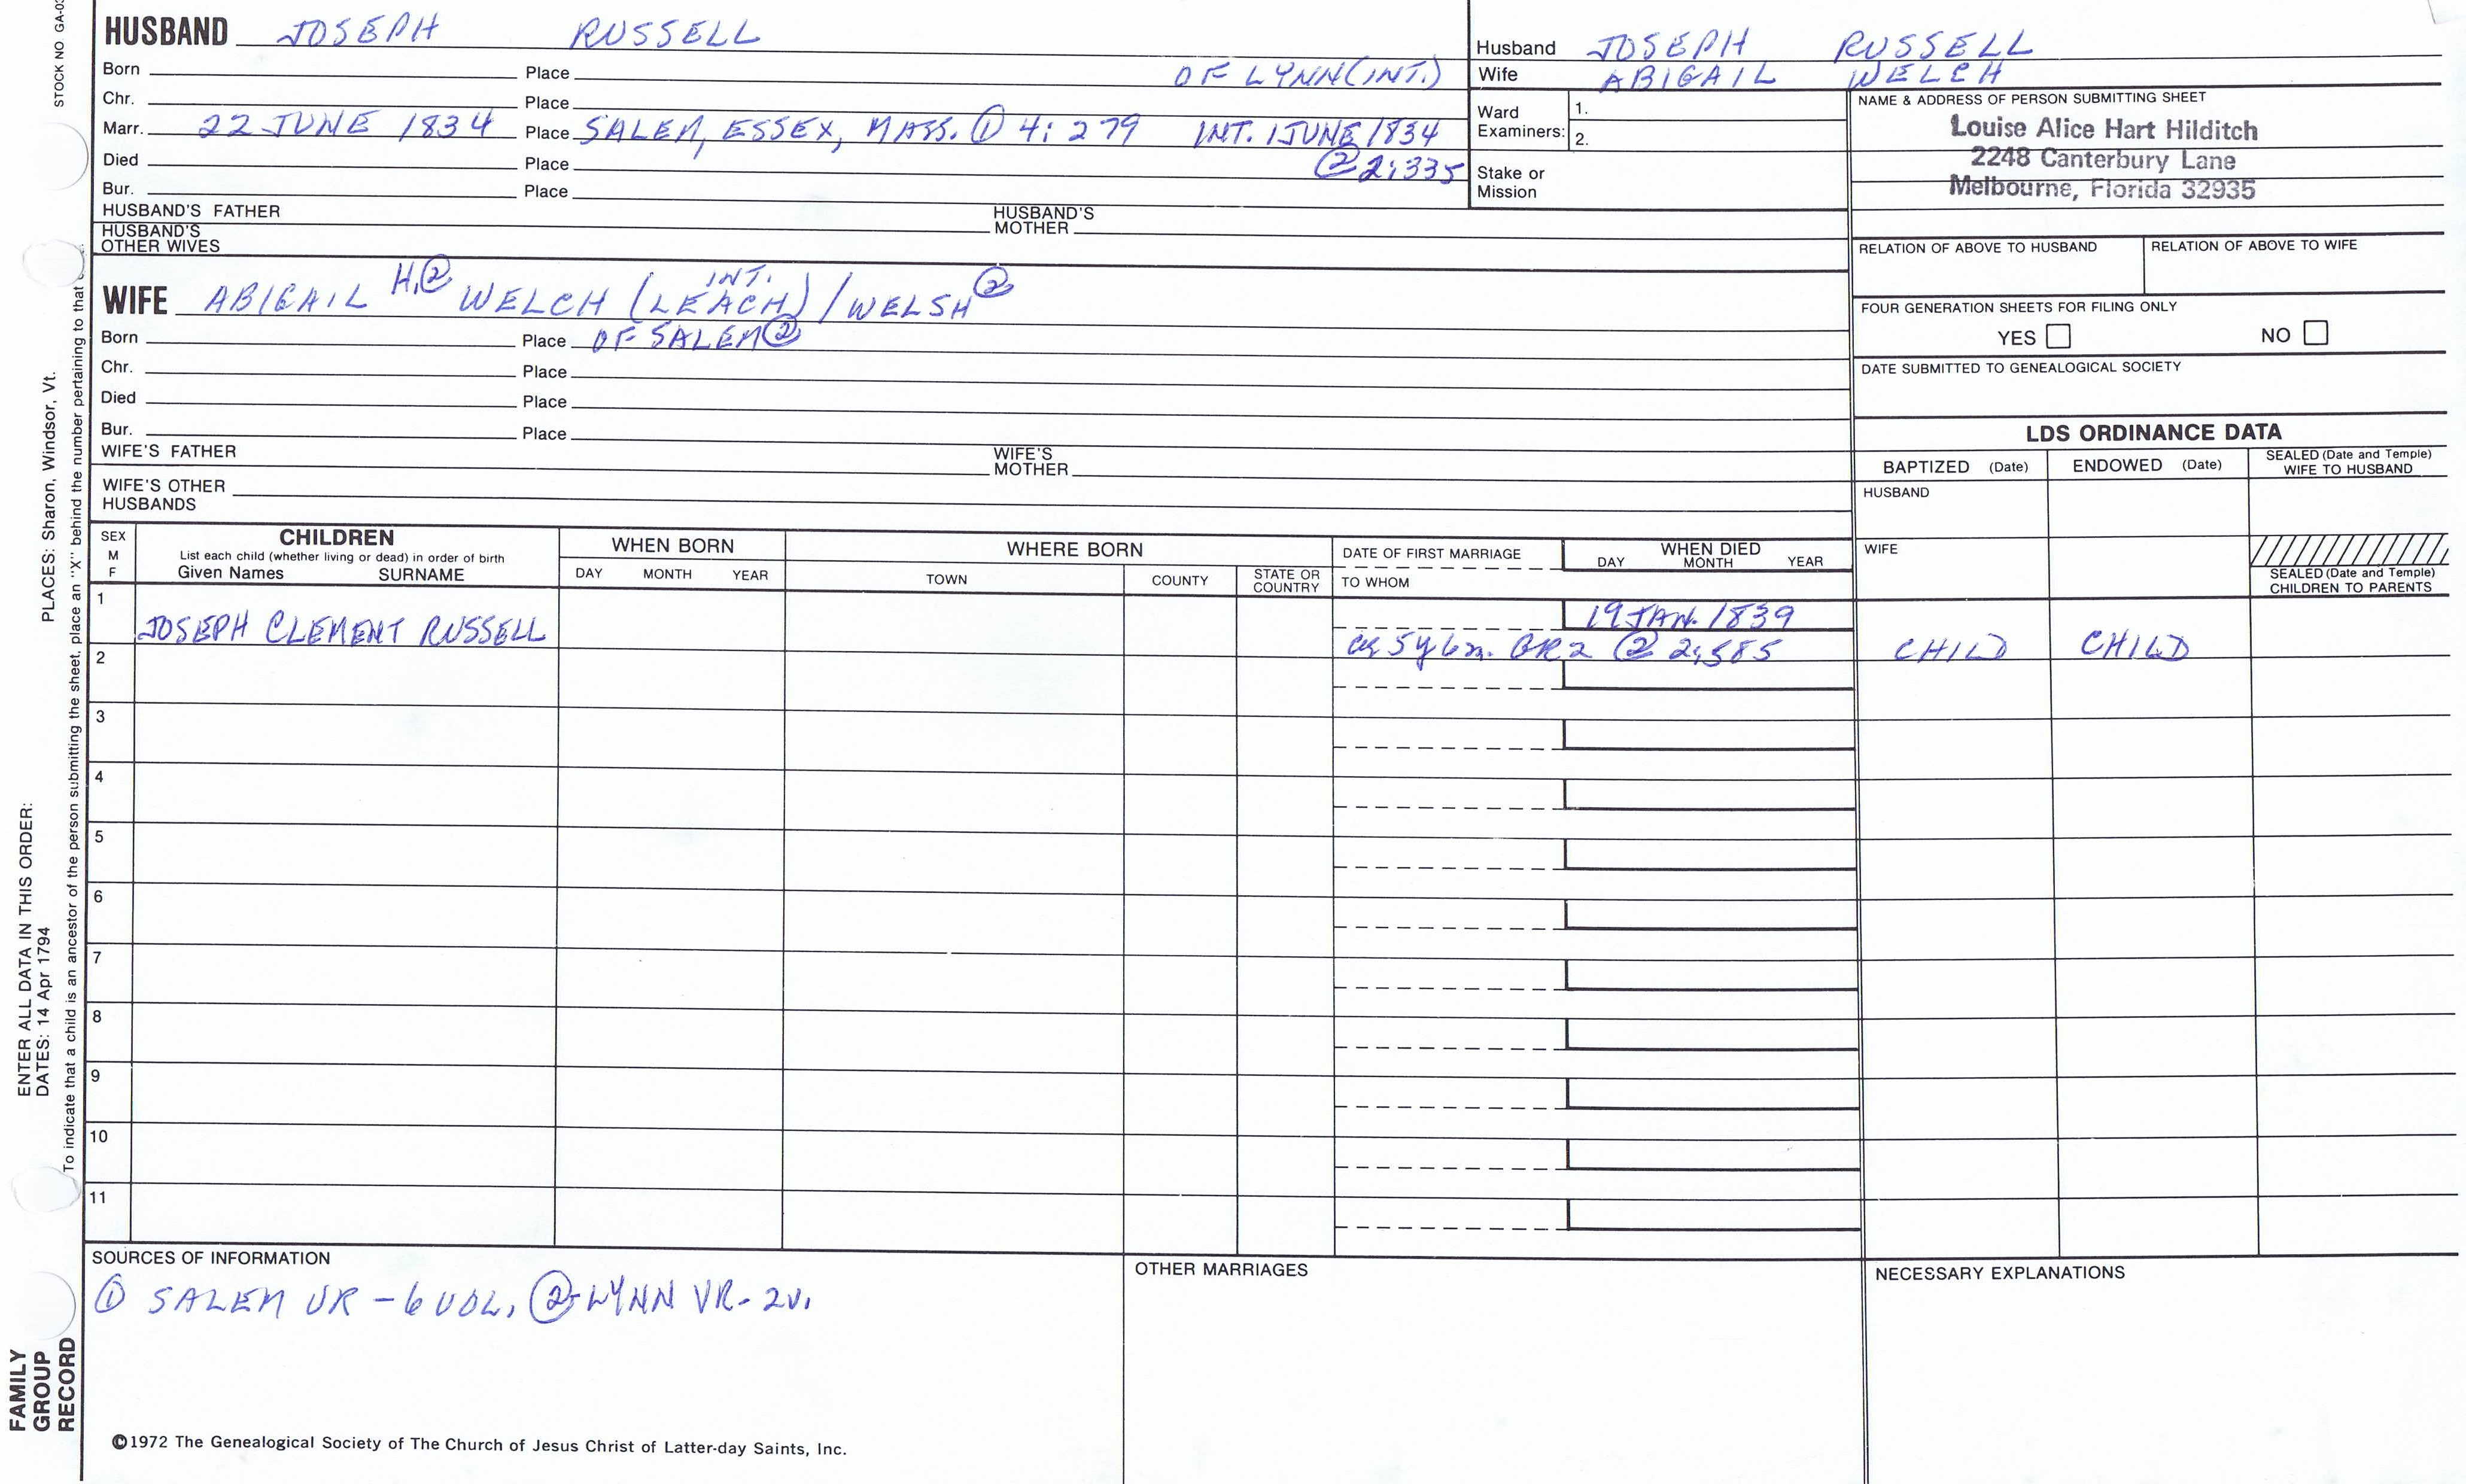 STOCK NO GA-0
HUSBAND JOSEPH RUSSELL
Born Place OF LYNN (INT.)
Chr. Place
Marr. 22 JUNE 1834 Place SALEM, ESSEX, MASS. ① 4:279 INT. 1 JUNE 1834
Died Place ② 2:335
Bur. Place
HUSBAND'S FATHER HUSBAND'S MOTHER
HUSBAND'S OTHER WIVES
Husband JOSEPH RUSSELL
Wife ABIGAIL WELCH
Ward Examiners: 1.
2.
Stake or Mission
NAME & ADDRESS OF PERSON SUBMITTING SHEET
Louise Alice Hart Hilditch
2248 Canterbury Lane
Melbourne, Florida 32935
RELATION OF ABOVE TO HUSBAND RELATION OF ABOVE TO WIFE
FOUR GENERATION SHEETS FOR FILING ONLY
YES NO
DATE SUBMITTED TO GENEALOGICAL SOCIETY
WIFE ABIGAIL H.② WELCH (INT. LEACH) / WELSH ②
Born Place OF SALEM ②
Chr. Place
Died Place
Bur. Place
WIFE'S FATHER WIFE'S MOTHER
WIFE'S OTHER HUSBANDS
LDS ORDINANCE DATA
BAPTIZED (Date) ENDOWED (Date) SEALED (Date and Temple) WIFE TO HUSBAND
HUSBAND
WIFE
SEALED (Date and Temple) CHILDREN TO PARENTS
SEX M F
CHILDREN
List each child (whether living or dead) in order of birth
Given Names SURNAME
WHEN BORN
DAY MONTH YEAR
WHERE BORN
TOWN COUNTY STATE OR COUNTRY
DATE OF FIRST MARRIAGE
TO WHOM
WHEN DIED
DAY MONTH YEAR
1 JOSEPH CLEMENT RUSSELL 19 JAN. 1839
5y 6m. GR2 ② 2:585 CHILD CHILD
2
3
4
5
6
7
8
9
10
11
SOURCES OF INFORMATION
① SALEM VR - 6 VOL. ② LYNN VR - 2V.
OTHER MARRIAGES
NECESSARY EXPLANATIONS
©1972 The Genealogical Society of The Church of Jesus Christ of Latter-day Saints, Inc.
ENTER ALL DATA IN THIS ORDER:
DATES: 14 Apr 1794 PLACES: Sharon, Windsor, Vt.
To indicate that a child is an ancestor of the person submitting the sheet, place an "X" behind the number pertaining to that
FAMILY
GROUP
RECORD